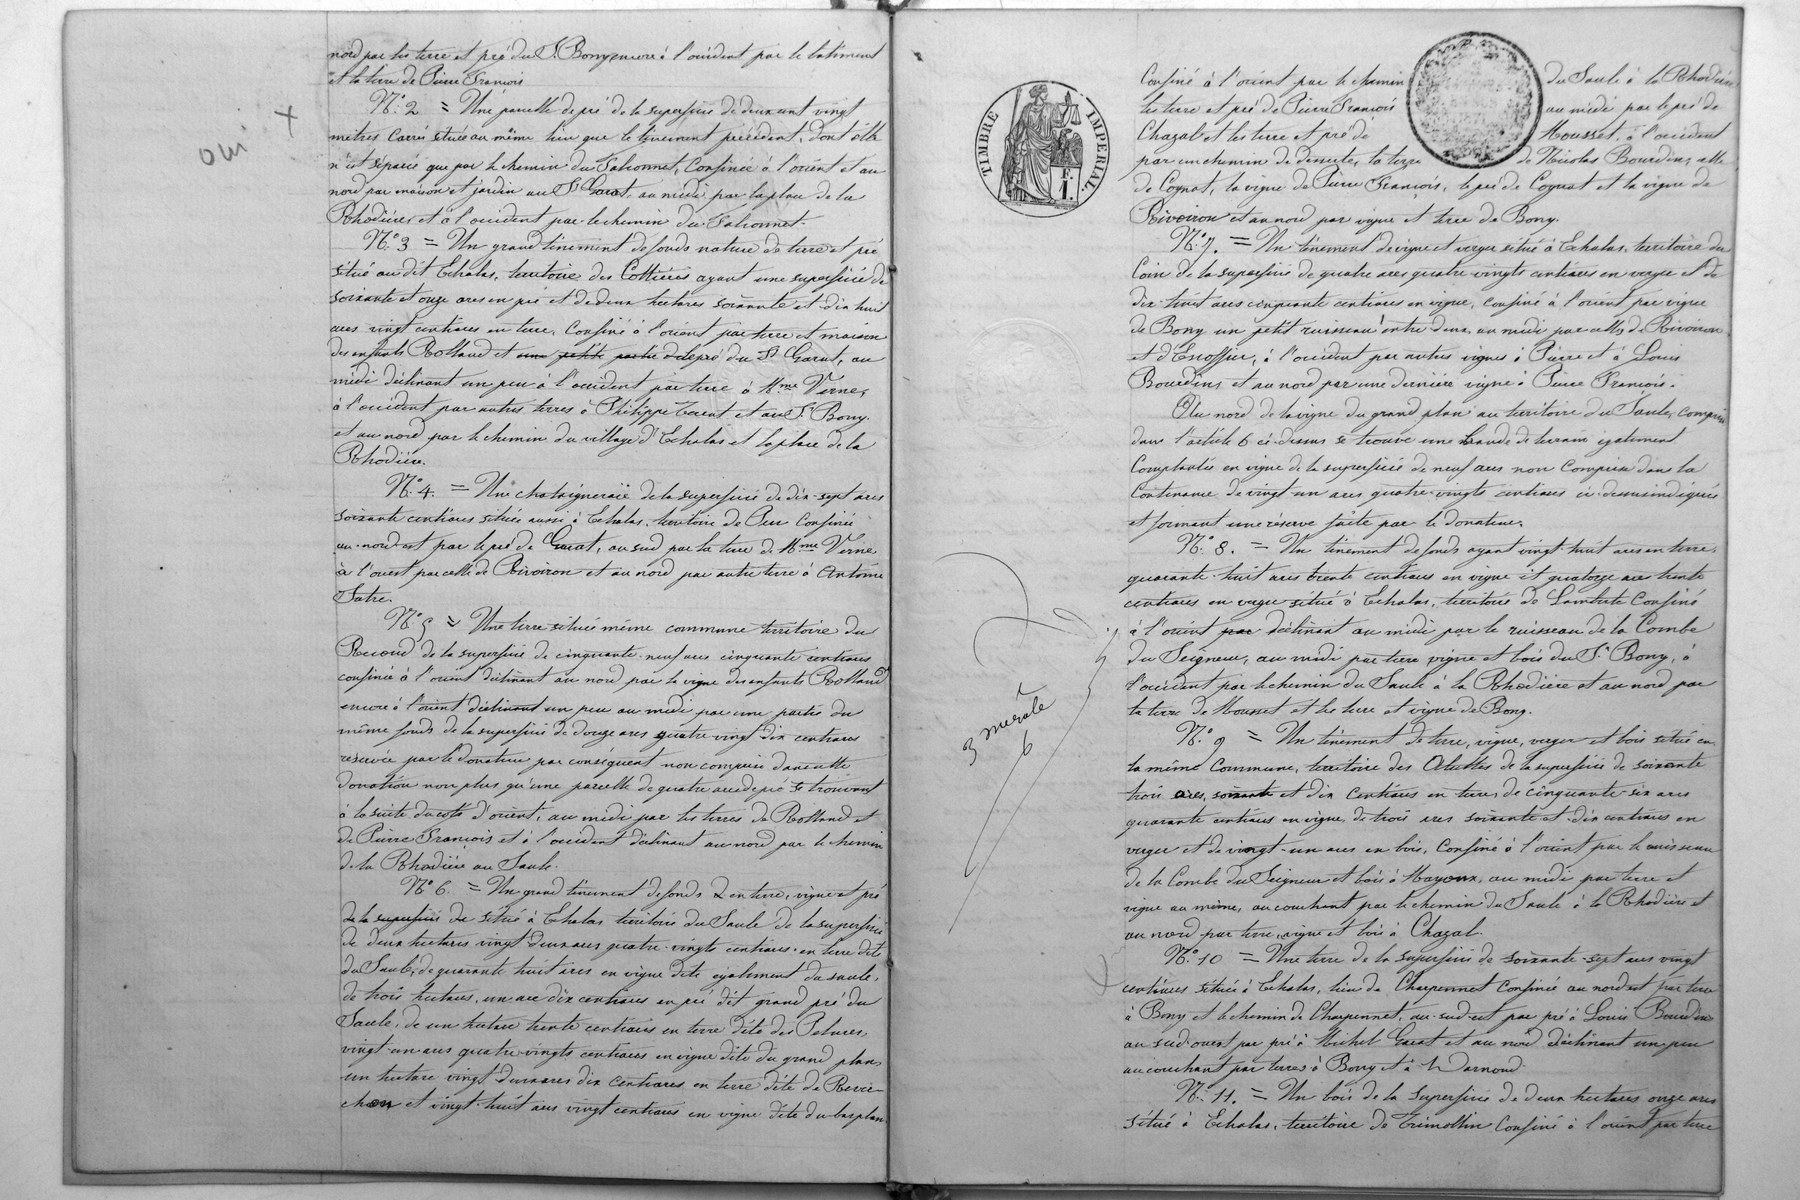 nord par les terre et pré du Sr Bony encore à l'occident par le bâtiment
et la terre de Pierre François
N.° 2 = Une parcelle de pré de la superficie de deux cent vingt
mètres carrés située au même lieu que le tènement précédent, dont elle
n'est séparée que par le chemin du Sahonnet, Confinée à l'orient et au
nord par maison et jardin au Sr Garat, au midi par la place de la
Rhodière, et à l'occident par le chemin du Sahonnet.
oui
N.° 3 = Un grand tènement de fonds nature de terre et pré
situé au dit Echalas, territoire des Cottières ayant une superficie de
soixante et onze ares en pré et de deux hectares soixante et dix huit
ares vingt centiares en terre, Confiné à l'orient par terre et maison
des enfants Rolland et une petite partie de le pré du Sr Garat, au
midi déclinant un peu à l'occident par terre à Mme Verne,
à l'occident par autres terres à Philippe et au Sr Bony
et au nord par le chemin du village d'Echalas et la place de la
Rhodière.
N.° 4. = Une chataigneraie de la superficie de dix-sept ares
soixante centiares située aussi à Echalas, territoire de Peu Confinée
au nord-est par le pré de Garat, au sud par la terre de Mme Verne
à l'ouest par celle de Rivoiron et au nord par autre terre à Antoine
Satre.
N.° 5 = Une terre située même commune territoire du
Recond de la superficie de cinquante-neuf ares cinquante centiares
confinée à l'orient déclinant au nord par la vigne des enfants Rolland
encore à l'orient déclinant un peu au midi par une partie du
même fonds de la superficie de douze ares quatre vingt dix centiares
réservée par le donateur par conséquent non comprise dans cette
donation non plus qu'une parcelle de quatre ares de pré se trouvant
à la suite du côté d'orient, au midi par les terres de Rolland et
de Pierre François et à l'occident déclinant au nord par le chemin
de la Rhodière au Saule.
N.° 6. = Un grand tènement de fonds en terre, vigne et pré
de la superficie de situé à Echalas territoire du Saule de la superficie
de deux hectares vingt-deux ares quatre-vingts centiares en terre dite
du Saule, de quarante huit ares en vigne dite également du saule,
de trois hectares, un are dix centiares en pré dit grand pré du
Saule, de un hectare trente centiares en terre dite des Pelures,
vingt-un ares quatre-vingts centiares en vigne dite du grand plan,
un hectare vingt-deux ares dix centiares en terre dite de
et vingt-huit ares vingt centiares en vigne dite du bas plan
TIMBRE IMPERIAL.
1 F.
Confiné à l'orient par le chemin du Saule à la Rhodière
les terre et pré de Pierre François au midi par le pré de
Chazal et les terre et pré de Mousset, à l'occident
par un chemin de desserte, la terre de Nicolas Bourdin, celle
de Coynat, la vigne de Pierre François, le pré de Coynat et la vigne de
Rivoiron et au nord par vigne et terre de Bony.
N.° 7. = Un tènement de vigne et verger situé à Echalas, territoire du
Coin de la superficie de quatre ares quatre-vingts centiares en verger et de
dix-huit ares cinquante centiares en vigne, confiné à l'orient par vigne
de Bony un petit ruisseau entre deux, au midi par celles de Rivoiron
et d'Escoffier, à l'occident par autres vignes à Pierre et à Louis
Bourdin, et au nord par une dernière vigne à Pierre François.
Au nord de la vigne du grand plan au territoire du Saule, comprise
dans l'article 6 ci-dessus se trouve une bande de terrain également
Complantée en vigne de la superficie de neuf ares non comprise dans la
Contenance de vingt-un ares quatre-vingts centiares ci-dessus indiquée
et formant une réserve faite par le donateur.
N.° 8. = Un tènement de fonds ayant vingt-huit ares en terre,
quarante-huit ares trente centiares en vigne et quatorze ares trente
centiares en verger situé à Echalas, territoire de Confiné
à l'orient par déclinant au midi par le ruisseau de la Combe
du Seigneur, au midi par terre vigne et bois du Sr Bony, à
l'occident par le chemin du Saule à la Rhodière et au nord par
la terre de Mousset et les terre et vigne de Bony.
3
6
N.° 9 = Un tènement de terre, vigne, verger et bois situé en
la même Commune, territoire des de la superficie de soixante
trois ares, soixante et dix centiares en terre, de cinquante-six ares
quarante centiares en vigne, de trois ares soixante et dix centiares en
verger et de vingt-un ares en bois, Confiné à l'orient par le ruisseau
de la Combe du Seigneur et bois à Mayoux, au midi par terre et
vigne au même, au couchant par le chemin du Saule à la Rhodière et
au nord par terre, vigne et bois à Chazal.
N.° 10 = Une terre de la superficie de soixante-sept ares vingt
centiares située à Echalas, lieu de Charpennet Confiné au nord est par terre
à Bony et le chemin de Charpennet, au sud-est par pré à Louis Bourdin
au sud-ouest par pré à Michel Garat et au nord déclinant un peu
au couchant par terres à Bony et à
N.° 11. = Un bois de la superficie de deux hectares onze ares
situé à Echalas, territoire de Trimollin Confiné à l'orient par terre